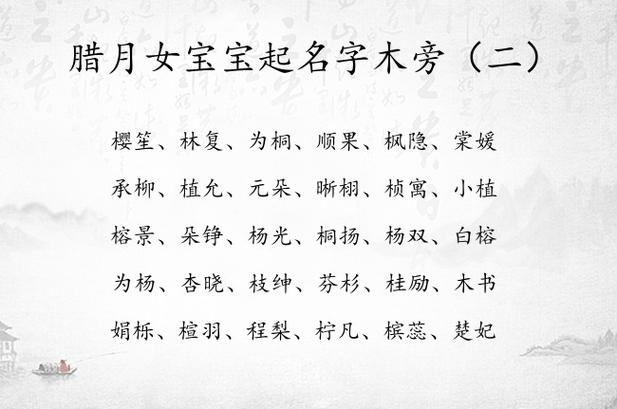 腊月女宝宝起名字木旁（二）
樱笙、林复、为桐、顺果、枫隐、棠媛
承柳、植允、元朵、晰栩、桢寓、小植
榕景、朵铮、杨光、桐扬、杨双、白榕
为杨、杏晓、枝绅、芬杉、桂励、木书
娟栎、楦羽、程梨、柠凡、槟蕊、楚妃